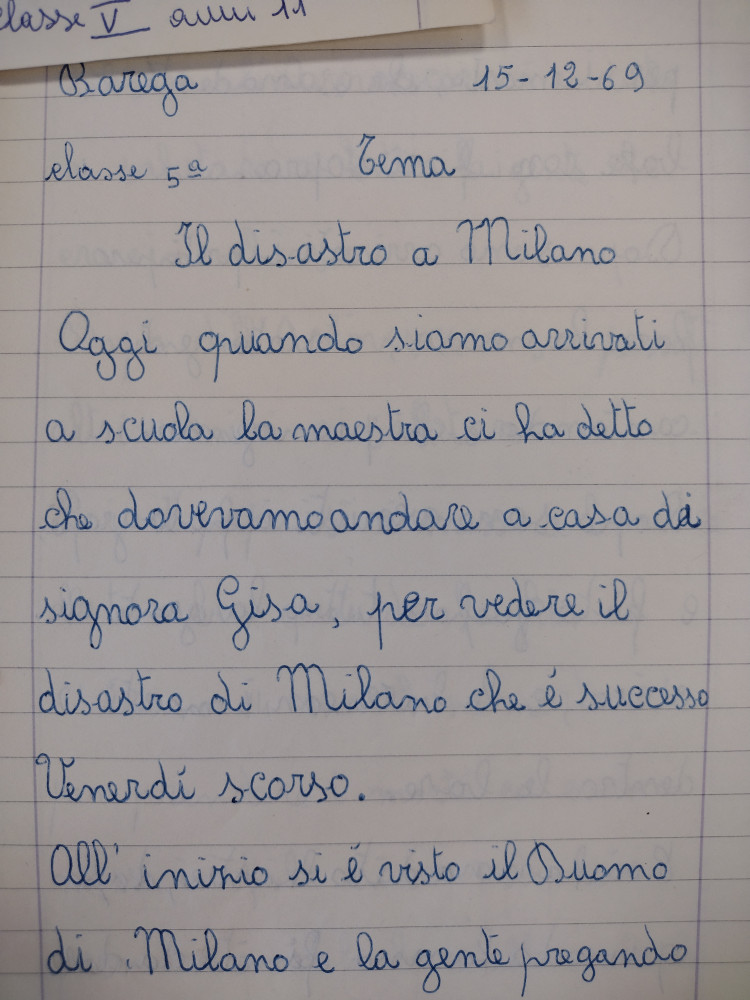 classe V anni 11
Barega 15-12-69
classe 5ª Tema
Il disastro a Milano
Oggi quando siamo arrivati
a scuola la maestra ci ha detto
che dovevamo andare a casa di
signora Gisa, per vedere il
disastro di Milano che é successo
Venerdí scorso.
All' inizio si é visto il Duomo
di Milano e la gente pregando